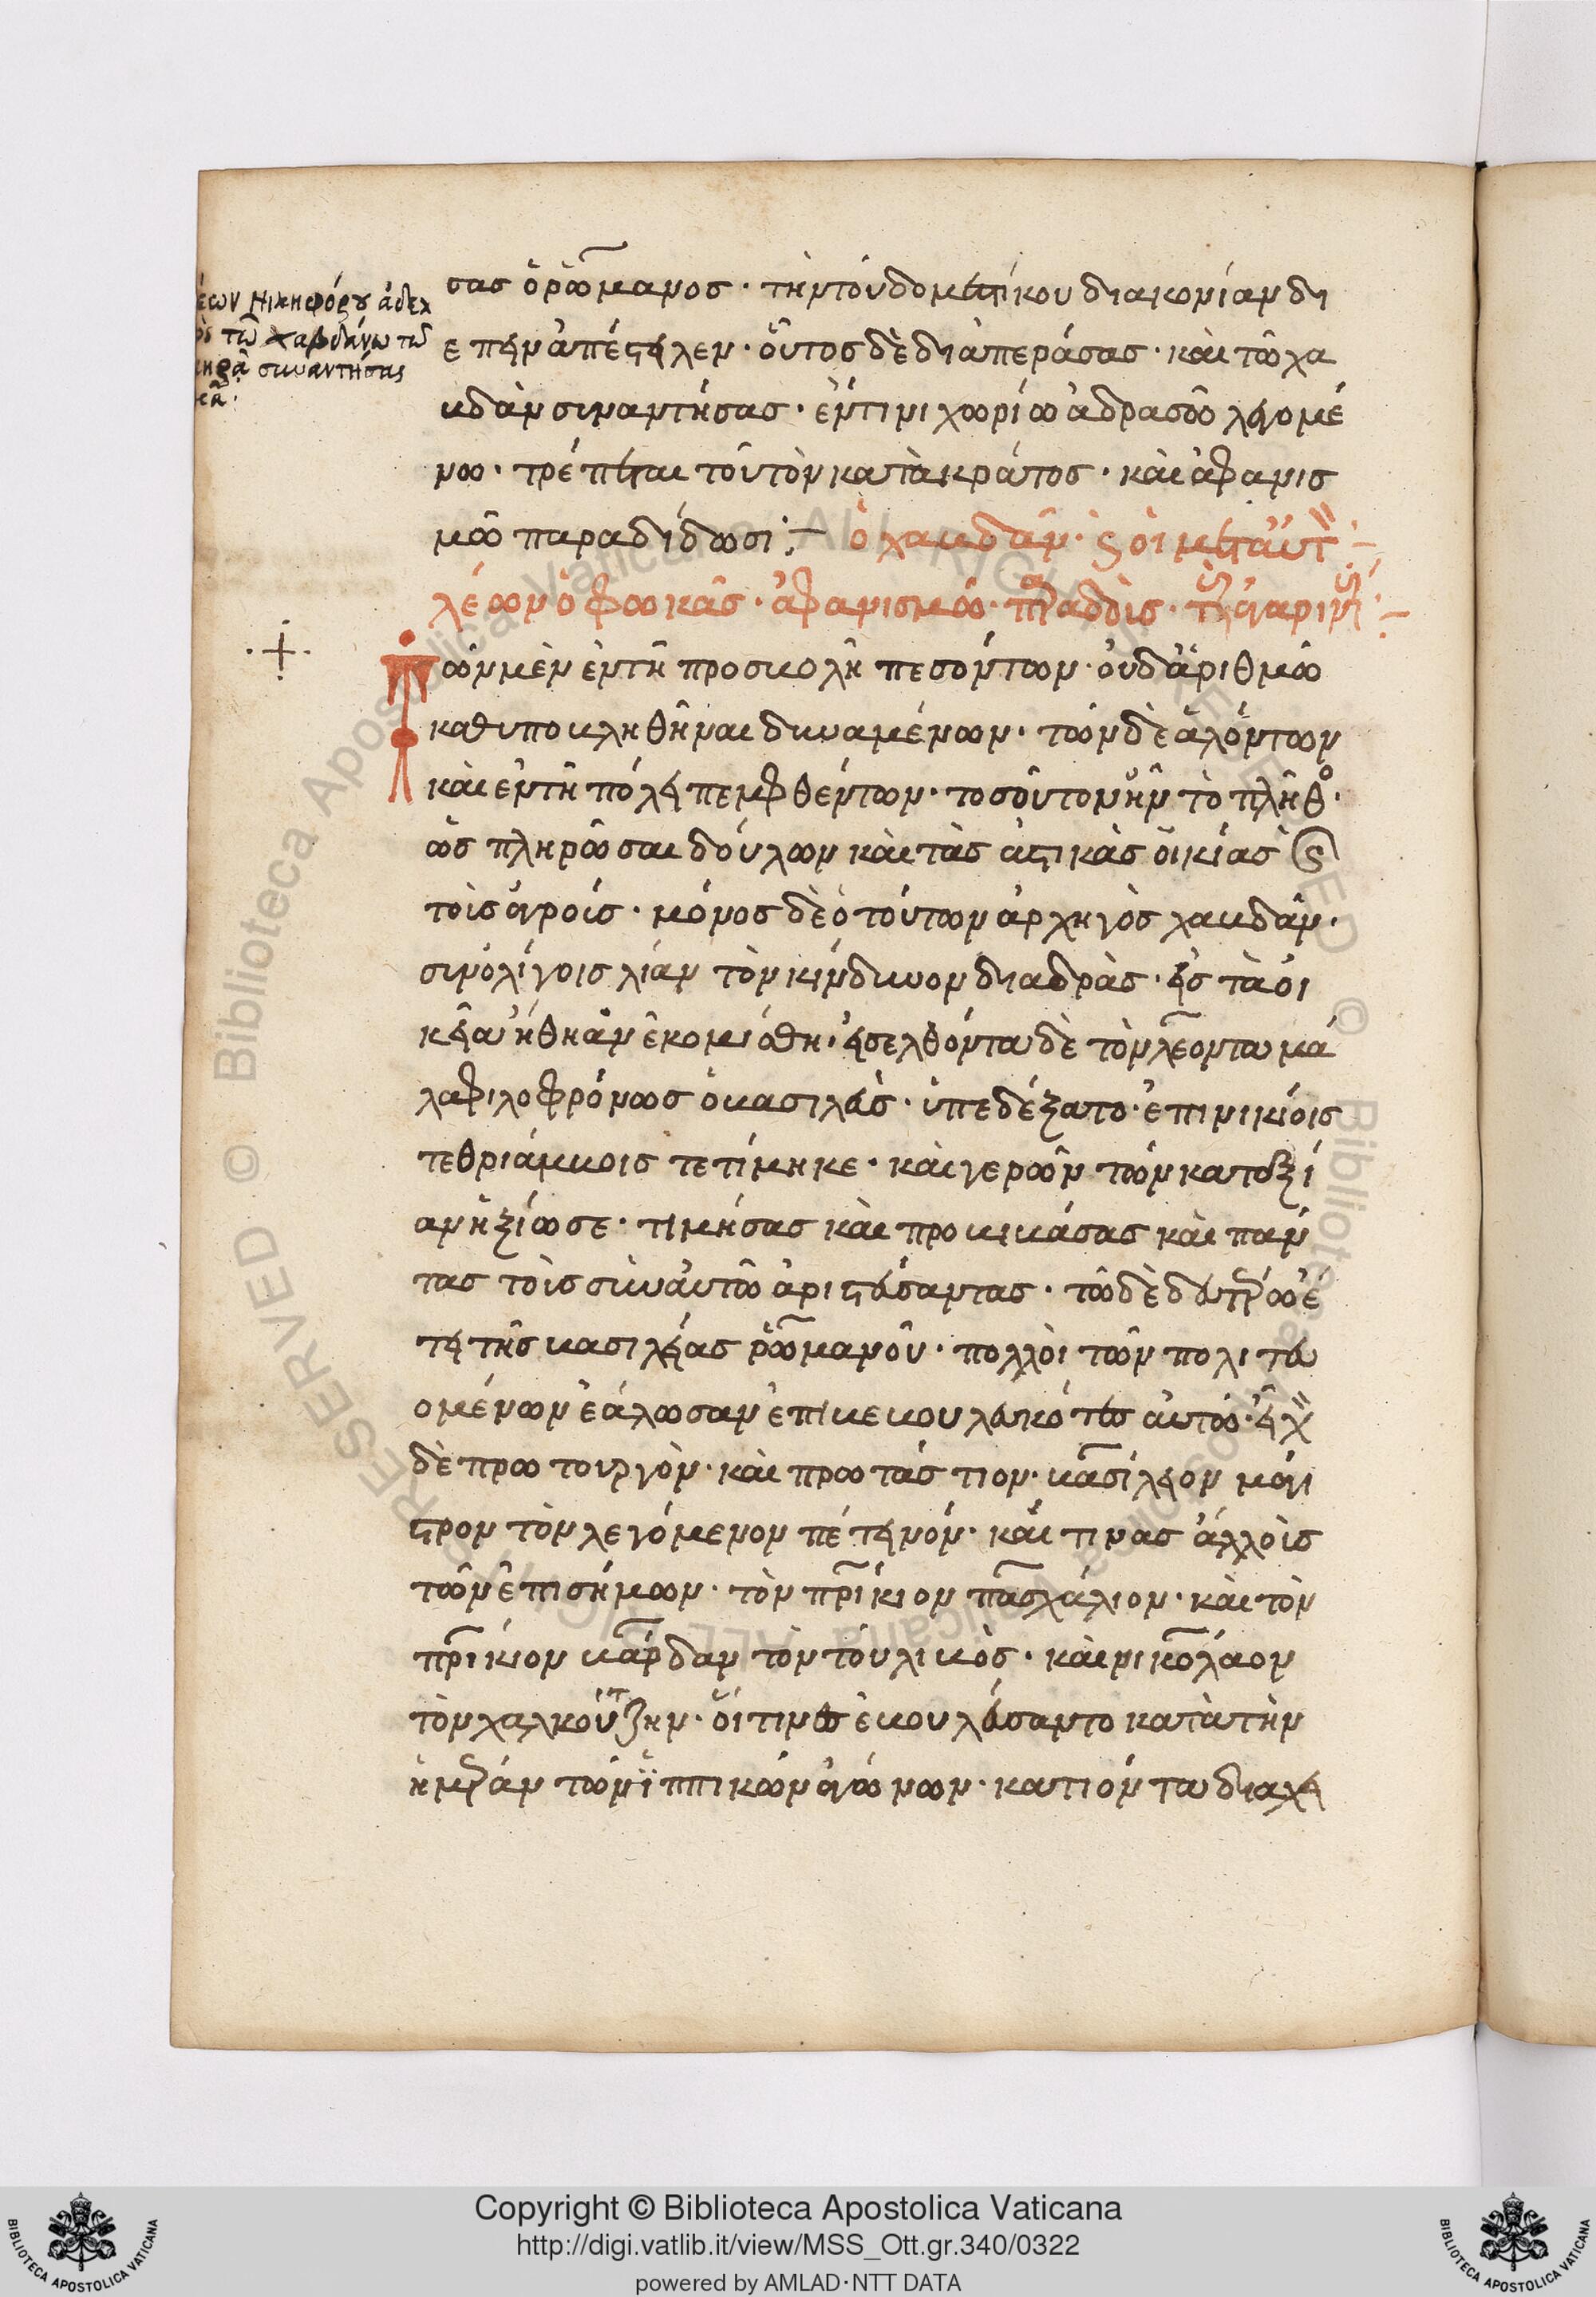 έων Νικηφόρου ἀδελ
ὸς τῶ χαβδάνω τῶ
μηρᾶ συναντήσας
κᾶ·
σας ὁ ρωμανος · τὴν τοῦ δομεστίκου διακονίαν δι
έπειν ἀπέστειλεν · οὗτος δὲ διαπεράσας · καὶ τῶ χα
βδὰν συναντήσας · ἔν τινι χωρίω ἀδρασῶ λεγομέ
νω · τρέπεται τοῦτον κατὰ κράτος · καὶ ἀφανισ
μῶ παραδίδωσι :— ὁ χαβδᾶν · ϛ οἱ μετ αὐτ
λέων ὁ φωκᾶς · ἀφανισμῶ · παραδδὶς · τοὺς ἀγαρινούς :—
Τῶν μὲν ἐν τῆ προσβολῆ πεσόντων · οὐδ ἀριθμῶ
καθυποβληθῆναι δυναμένων · τῶν δὲ ἁλόντων
καὶ ἐν τῆ πόλει πεμφθέντων · τοσοῦτον ἦν τὸ πλῆθος ·
ὡς πληρῶσαι δούλων καὶ τὰς ἀστικὰς οἰκίας ϛ
τοῖς ἀγροίς · μόνος δὲ ὁ τούτων ἀρχηγὸς χαβδᾶν ·
σὺν ὀλίγοις λίαν τὸν κίνδυνον διαδρὰς · εἰς τὰ οἰ
κεῖα ἤθη ἀνεκομίσθη · εἰσελθόντα δὲ τὸν λέοντα μά
λα φιλοφρόνως ὁ βασιλεὺς · ὑπεδέξατο · ἐπινικίοις
τε θριάμβοις τετίμηκε · καὶ γερῶν τῶν κατ ἀξί
αν ἠξίωσε · τιμήσας καὶ προβιβάσας καὶ πάν
τας τοὺς σὺν αὐτῶ ἀριστεύσαντας · τῶ δὲ δευτέρω ἔ
τει τῆς βασιλείας ρωμανοῦ · πολλοὶ τῶν πολιτευ
ομένων ἑάλωσαν ἐπιβεβουλευκότες αὐτῶ · εἶχ
δὲ πρωτουργὸν · καὶ πρωτάστιον · βασίλειον μάγι
στρον τὸν λεγόμενον πετεινόν · καὶ τινας ἄλλους
τῶν ἐπισήμων · τὸν πρίκιον πασχάλιον · καὶ τὸν
πρίκιον βάρδαν τὸν τοῦ λιβὸς · καὶ νικόλαον
τὸν χαλκούτζην · οἵτινες ἐβουλεύσαντο κατὰ τὴν
ἡμέραν τῶν ἱππικῶν ἀγώνων · κατιόντα διαχει
Copyright © Biblioteca Apostolica Vaticana
http://digi.vatlib.it/view/MSS_Ott.gr.340/0322
powered by AMLAD·NTT DATA